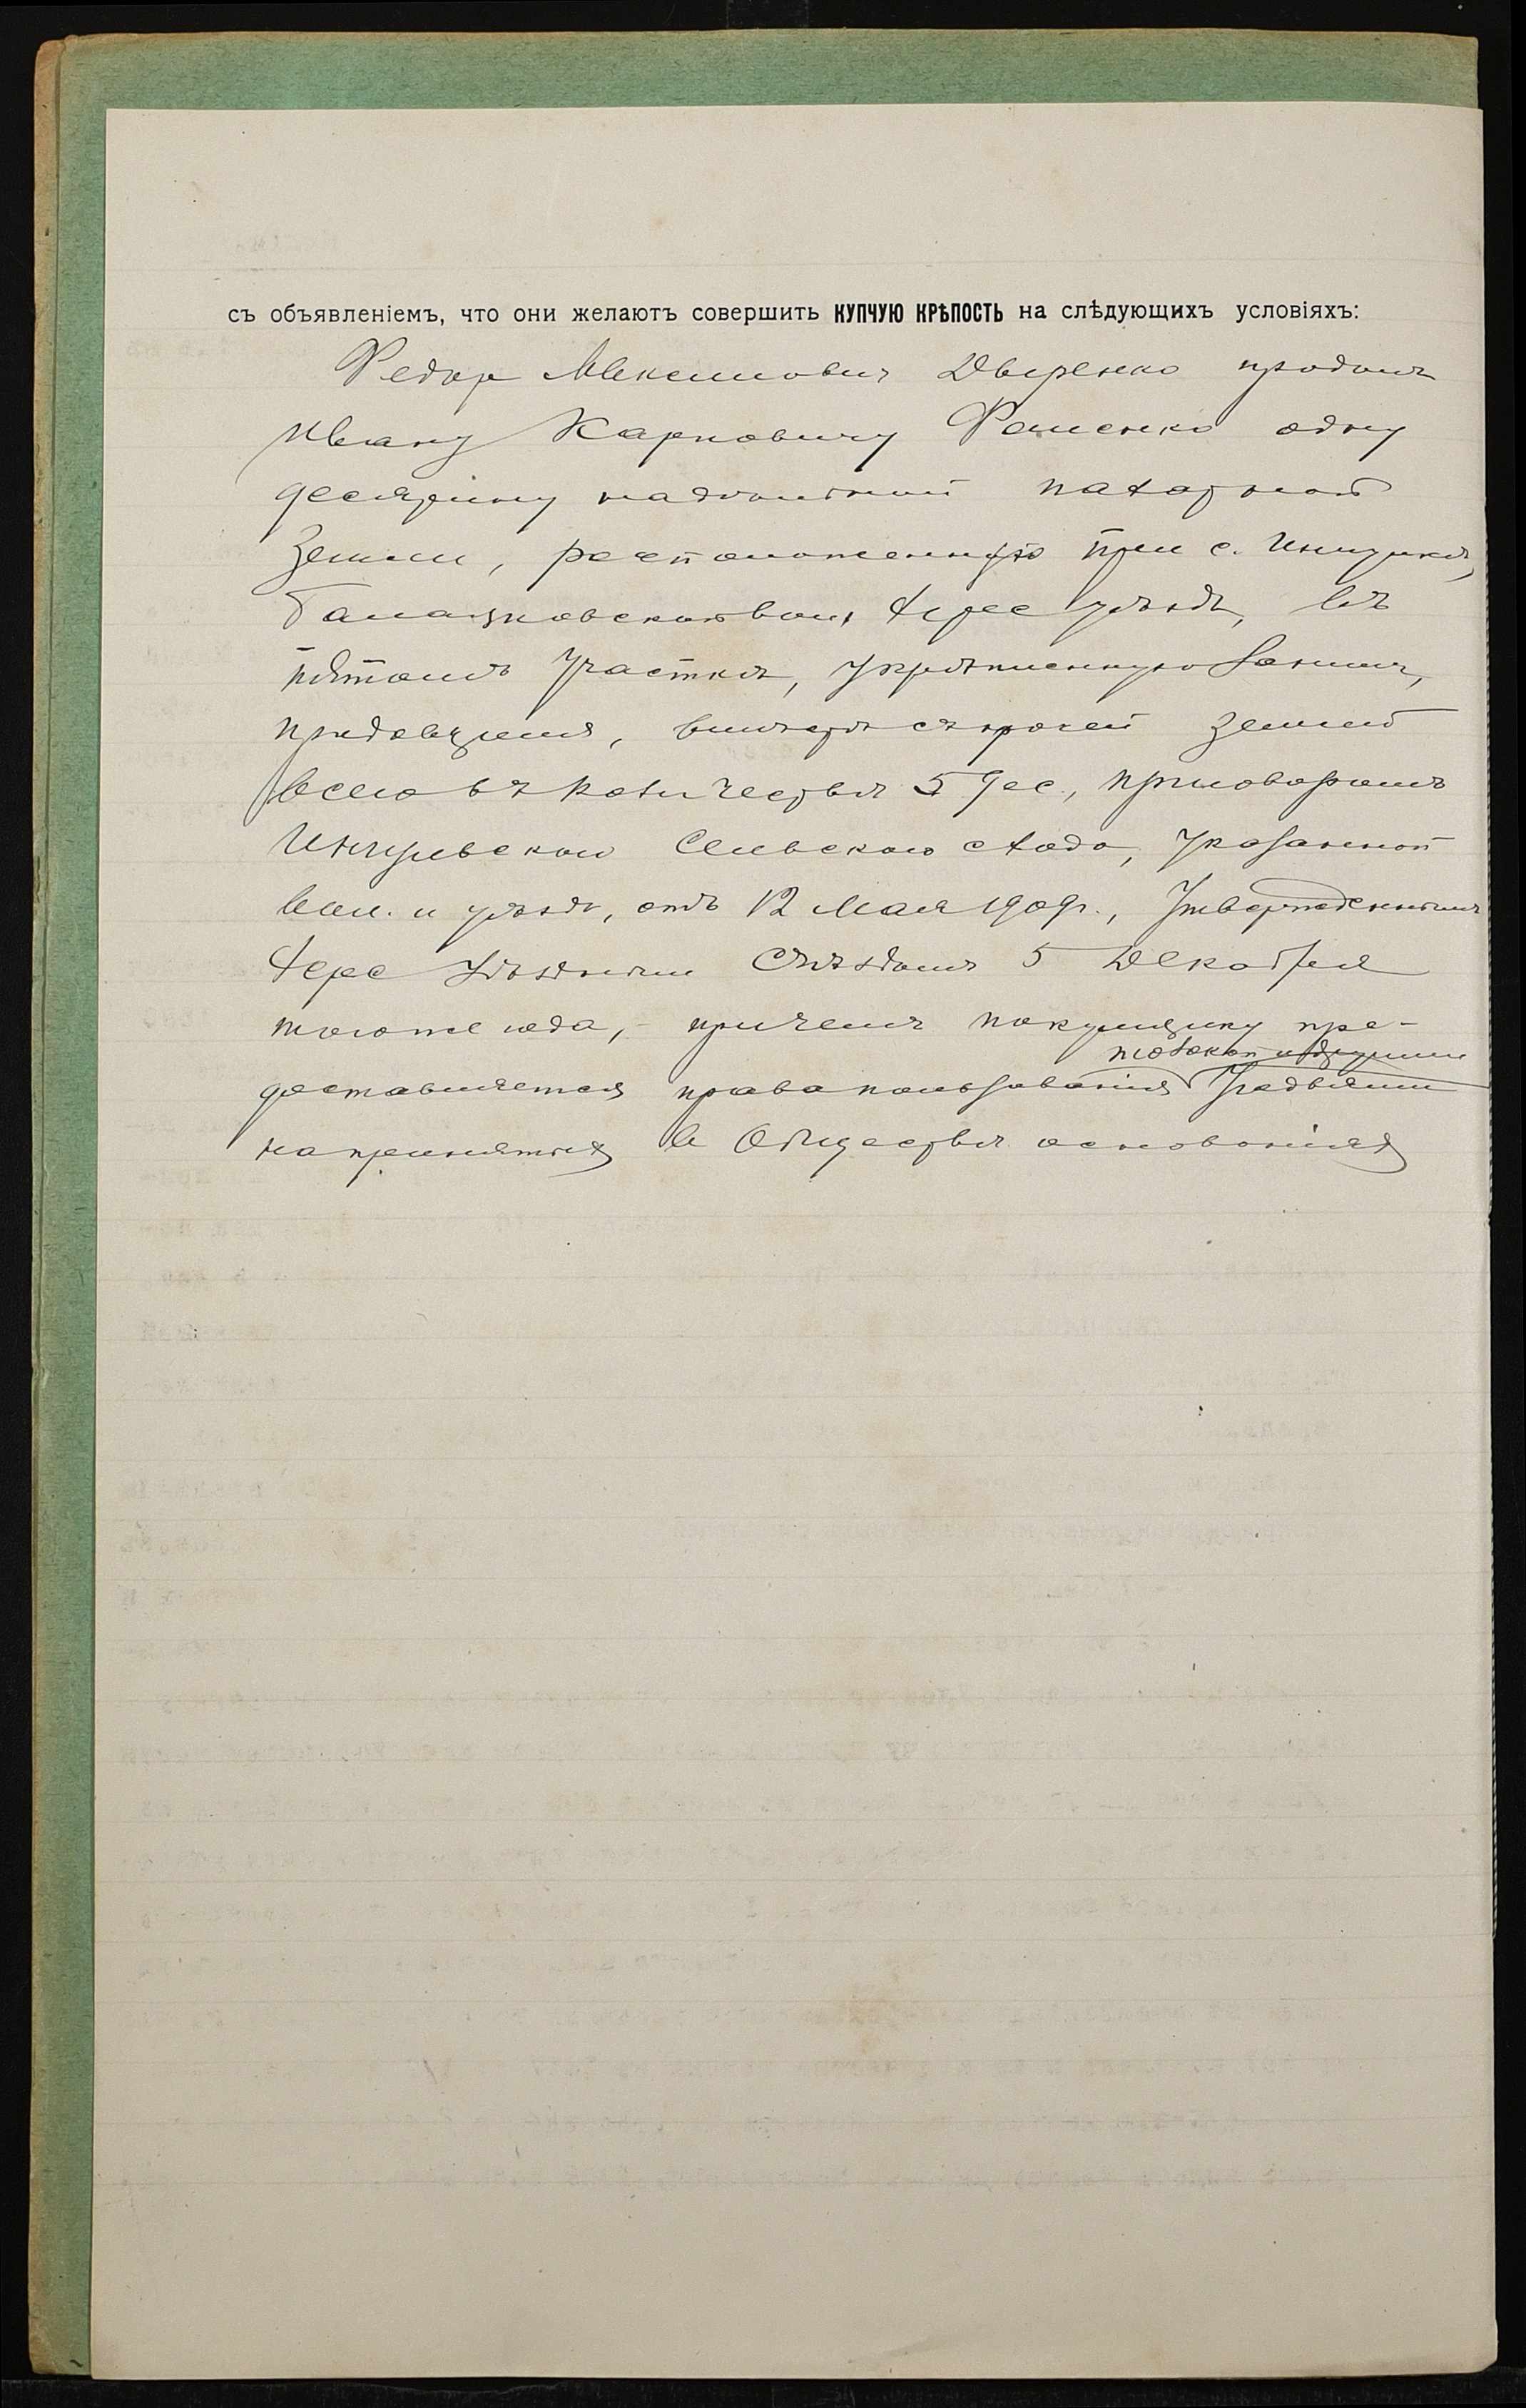 съ объявленіемъ, что они желаютъ совершить КУПЧУЮ КРѢПОСТЬ на слѣдующихъ условіяхъ:
Федоръ Максимовичъ продалъ
Ивану Карповичу Фоменко одну
десятину надѣльной пахатной
земли, расположенную при с.
Херс уѣзда, въ
пятомъ участкѣ, укрѣпленную за нимъ,
продавцемъ, вмѣстѣ съ прочей землей
всего въ количествѣ 5 дес, приговоромъ
Сельскаго схода, указанной
вол. и уѣзда, отъ 12 Мая 1909г., утвержденнымъ
Херс Уѣзднымъ Съѣздомъ 5 Декабря
того же года, - причемъ покупщику пре-
доставляется право пользованія
на принятыхъ въ Обществѣ основаніяхъ